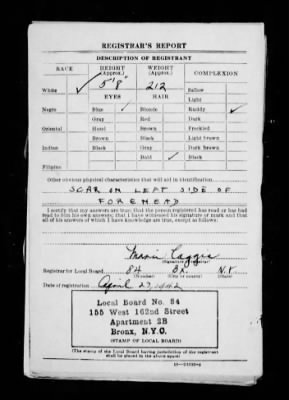 REGISTRAR'S REPORT
DESCRIPTION OF REGISTRANT
RACE HEIGHT (Approx.) WEIGHT (Approx.) COMPLEXION
White ✓ 5'8" 212 Sallow
EYES HAIR Light
Negro Blue ✓ Blonde Ruddy ✓
Gray Red Dark
Oriental Hazel Brown Freckled
Brown Black Light brown
Indian Black Gray Dark brown
Bald ✓ Black
Filipino
Other obvious physical characteristics that will aid in identification
SCAR ON LEFT SIDE OF
FOREHEAD
I certify that my answers are true; that the person registered has read or has had
read to him his own answers; that I have witnessed his signature or mark and that
all of his answers of which I have knowledge are true, except as follows:
(Signature of registrar)
Registrar for Local Board 84 BX. N.Y.
(Number) (City or county) (State)
Date of registration April 27, 1942
Local Board No. 84
155 West 162nd Street
Apartment 2B
Bronx, N.Y.C.
(STAMP OF LOCAL BOARD)
(The stamp of the Local Board having jurisdiction of the registrant
shall be placed in the above space.)